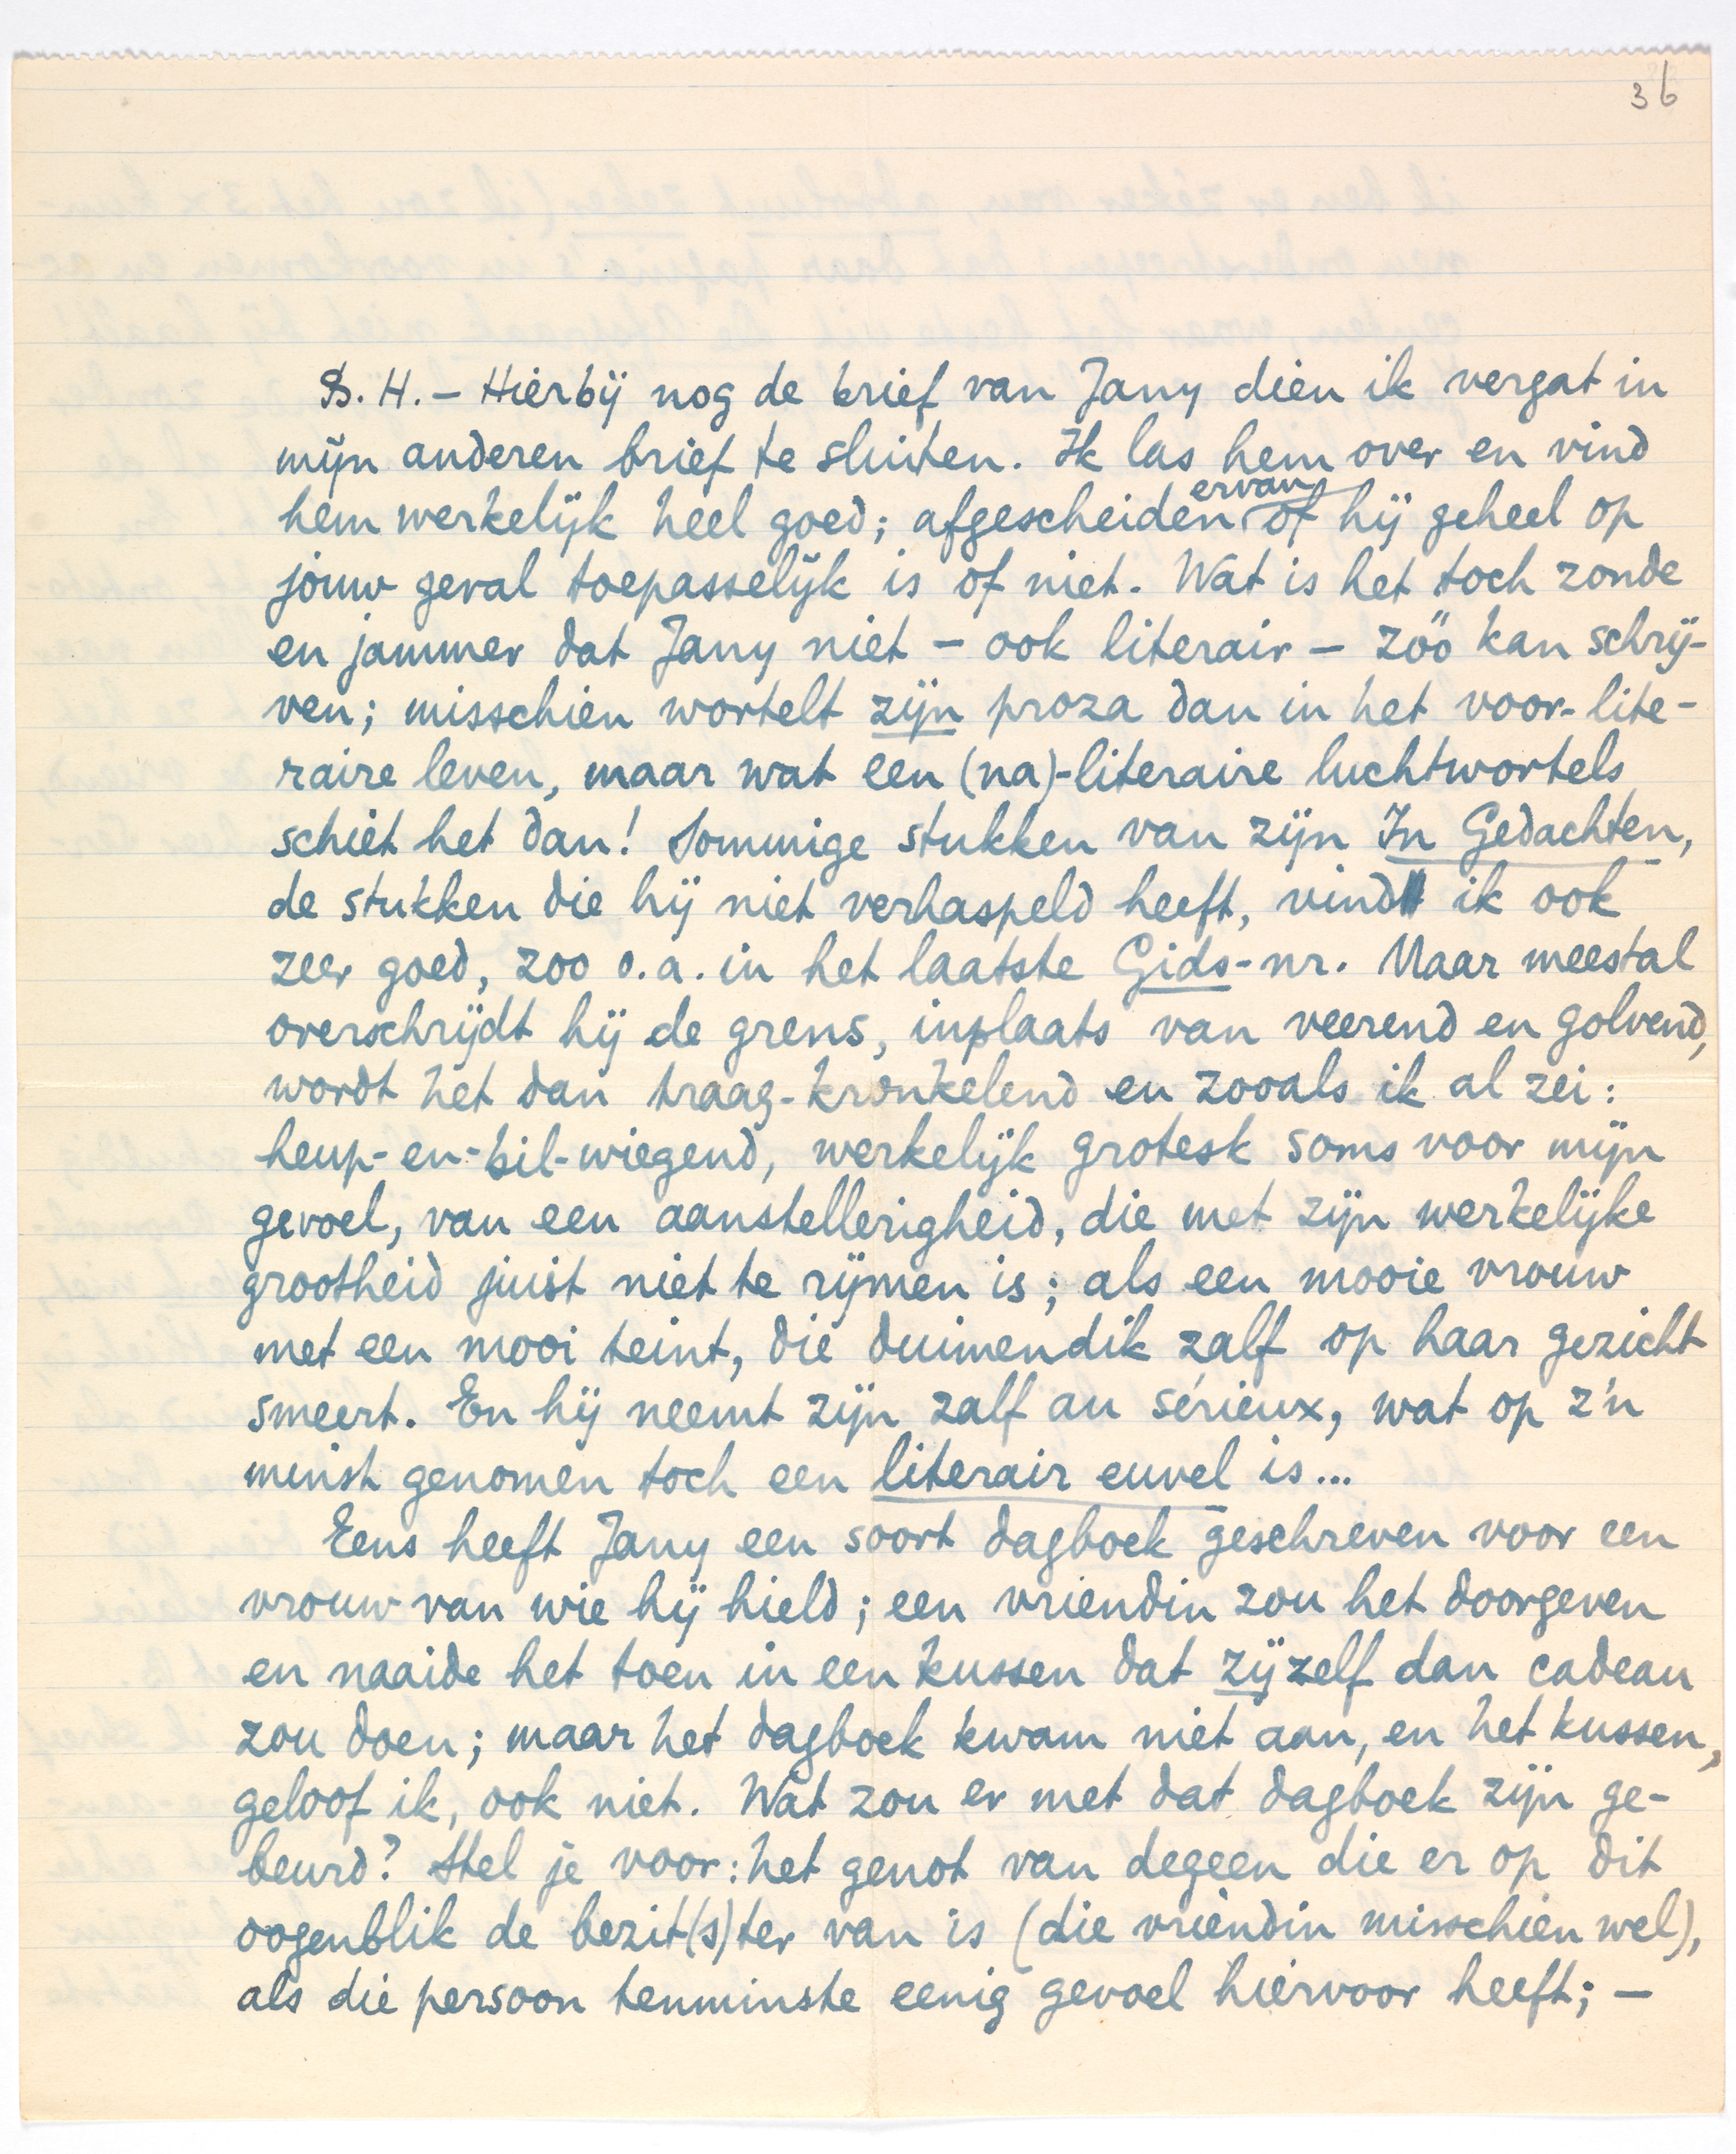 36
B. H. – Hierbij nog de brief van Jany dien ik vergat in
mijn anderen brief te sluiten. Ik las hem over en vind
hem werkelijk heel goed; afgescheiden ervan of hij geheel op
jouw geval toepasselijk is of niet. Wat is het toch zonde
en jammer dat Jany niet – ook literair – zóó kan schrij-
ven; misschien wortelt zijn proza dan in het voor-lite-
raire leven, maar wat een (na)-literaire luchtwortels
schiet het dan! Sommige stukken van zijn In Gedachten,
de stukken die hij niet verhaspeld heeft, vind ik ook
zeer goed, zoo o.a. in het laatste Gids-nr. Maar meestal
overschrijdt hij de grens, inplaats van veerend en golvend,
wordt het dan traag-kronkelend en zooals ik al zei:
heup-en-bil-wiegend, werkelijk grotesk soms voor mijn
gevoel, van een aanstellerigheid, die met zijn werkelijke
grootheid juist niet te rijmen is; als een mooie vrouw
met een mooi teint, die duimendik zalf op haar gezicht
smeert. En hij neemt zijn zalf au sérieux, wat op z'n
minst genomen toch een literair euvel is...
Eens heeft Jany een soort dagboek geschreven voor een
vrouw van wie hij hield; een vriendin zou het doorgeven
en naaide het toen in een kussen dat zij zelf dan cadeau
zou doen; maar het dagboek kwam niet aan, en het kussen,
geloof ik, ook niet. Wat zou er met dat dagboek zijn ge-
beurd? Stel je voor: het genot van degeen die er op dit
oogenblik de bezit(s)ter van is (die vriendin misschien wel),
als die persoon tenminste eenig gevoel hiervoor heeft; –